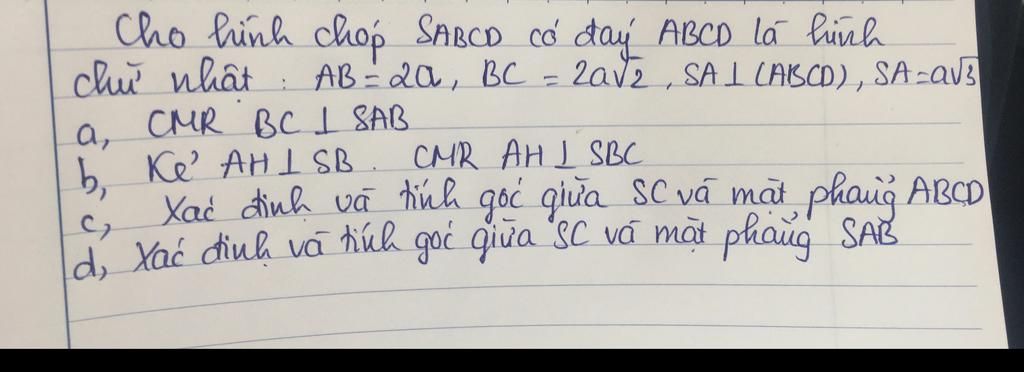 Cho hình chóp SABCD có đáy ABCD là hình
chữ nhật : AB = 2a, BC = 2a√2, SA ⊥ (ABCD), SA = a√3
a, CMR BC ⊥ SAB
b, Kẻ AH ⊥ SB. CMR AH ⊥ SBC
c, Xác định và tính góc giữa SC và mặt phẳng ABCD
d, Xác định và tính góc giữa SC và mặt phẳng SAB